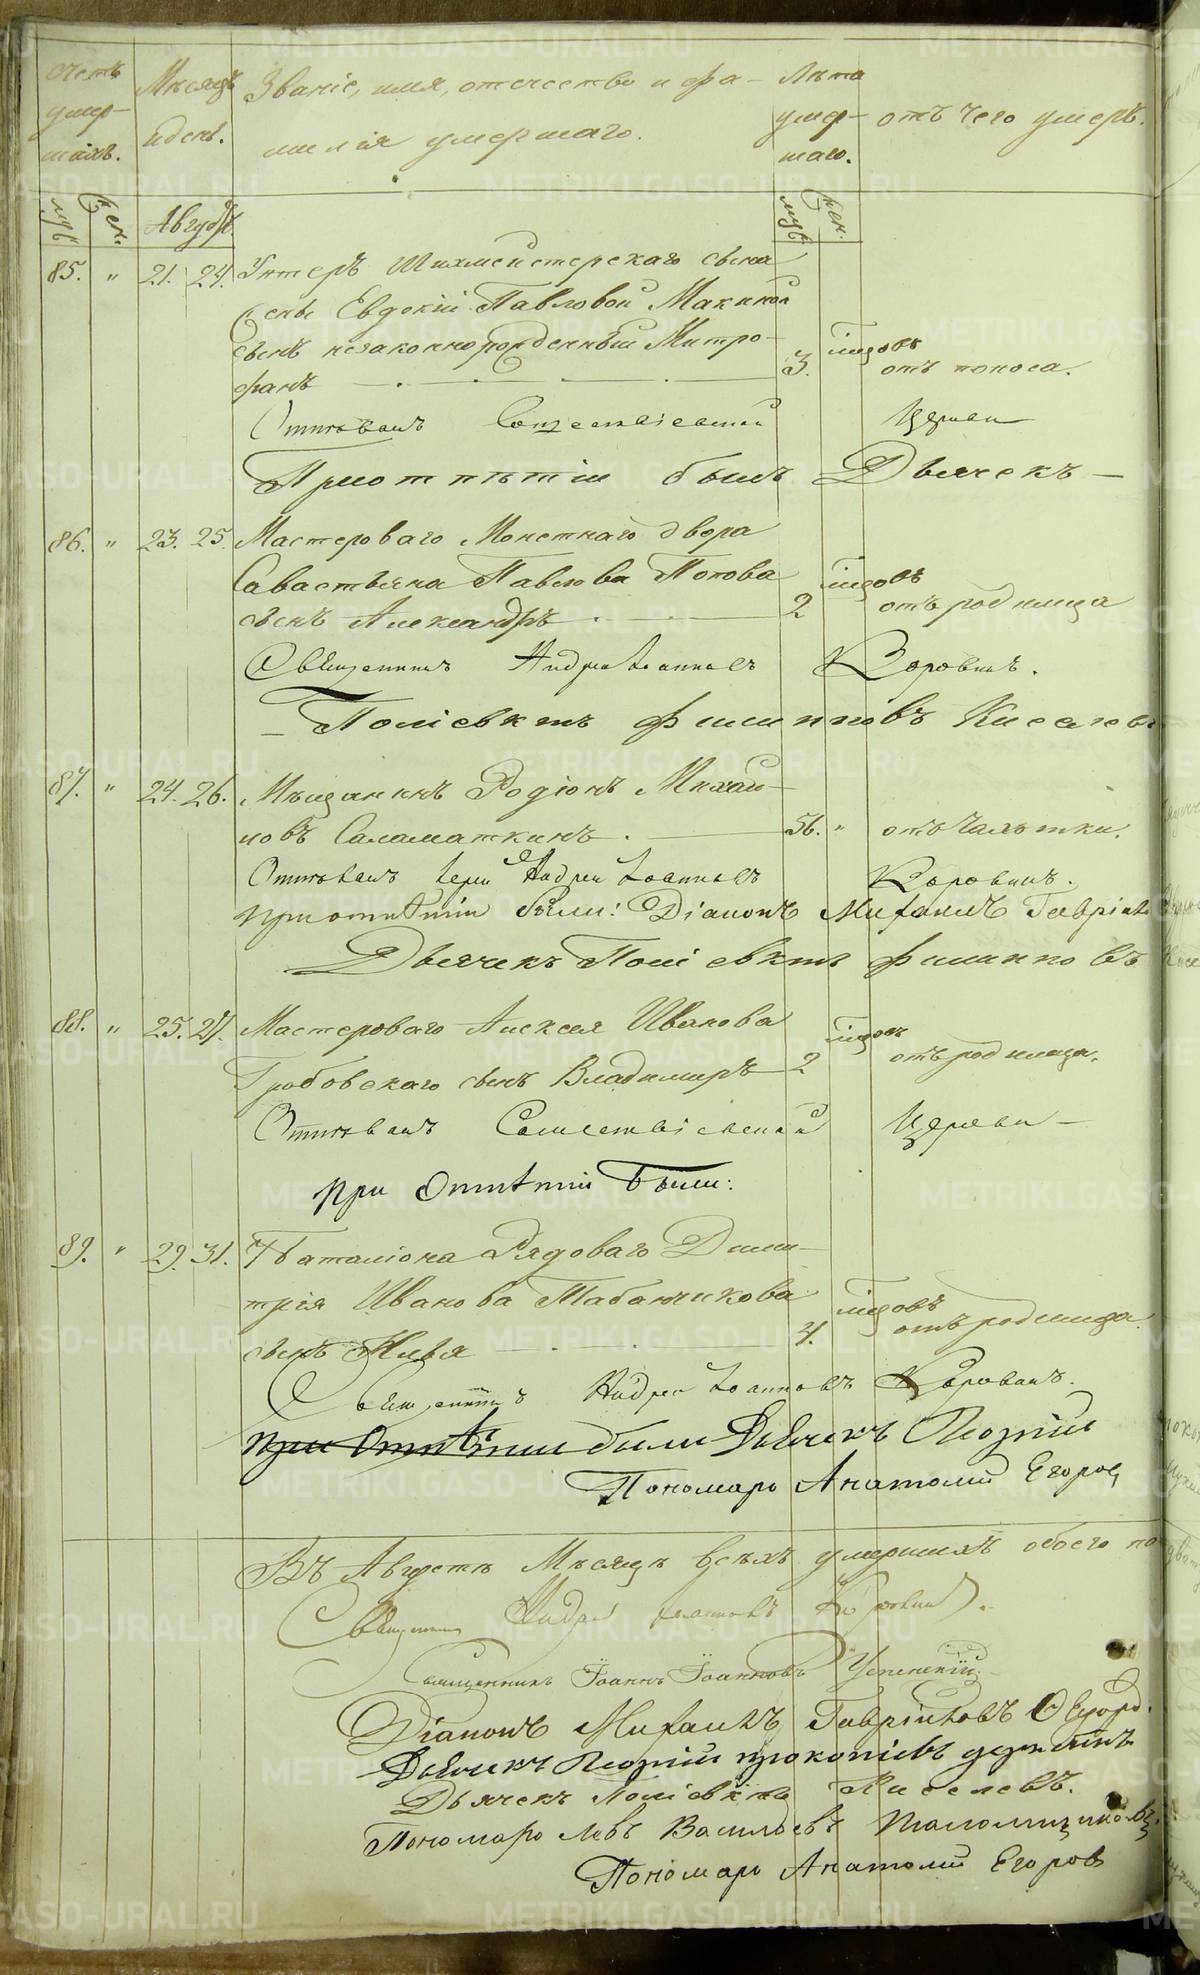 Счетъ умер- шихъ.
Мѣсяцъ и день.
Званіе, имя, отчество и фа-
милія умершаго.
Лѣта умер- шаго.
отъ чего умеръ.
муж.
жен.
Августъ.
муж.
жен.
85. " 21. 24. Унтеръ Шихмейстерскаго сына
жены Евдокіи Павловой
сынъ незаконнорожденный Митро-
фанъ 3. мѣсяцовъ отъ поноса.
Отпѣвалъ Сошественской Церкви
При отпѣтіи былъ Дьячекъ
86. " 23. 25. Мастероваго Монетнаго двора
Савастьяна Павлова Попова
сынъ Александръ 2 мѣсяцовъ отъ родимца
Священникъ Андрей Іоанновъ Коровинъ.
Поліевктъ Филипповъ Киселевъ
87. " 24. 26. Мѣщанинъ Родіонъ Михай-
ловъ Саламаткинъ. 56. " отъ чахотки.
Отпѣвалъ Іерей Андрей Іоанновъ Коровинъ.
при отпѣтіи были: Діаконъ Михаилъ Гавріило
Дьячекъ Поліевктъ Филипповъ
88. " 25. 27. Мастероваго Алексѣя Иванова
Гробовскаго сынъ Владимиръ 2 мѣсяцовъ отъ родимца.
Отпѣвалъ Сошественской Церкви
при Отпѣтіи Были:
89. " 29. 31. Баталіона Рядоваго Дими-
трія Иванова Табатчикова
сынъ Илья 4. мѣсяцовъ отъ родимца.
Священникъ Андрей Іоанновъ Коровинъ.
при Отпѣтіи были Дьячекъ Георгій
Пономарь Анатолій Егоров
Въ Августѣ Мѣсяцѣ всѣхъ умершихъ обоего по
Священникъ Андрей Іоанновъ Коровинъ.
Священникъ Іоаннъ Іоанновъ Успенскій
Діаконъ Михаилъ Гавріиловъ
Дьячекъ Георгій Прокопіевъ
Дьячекъ Поліевктъ Киселевъ.
Пономарь Левъ Васильевъ
Пономарь Анатолій Егоровъ
METRIKI.GASO-URAL.RU